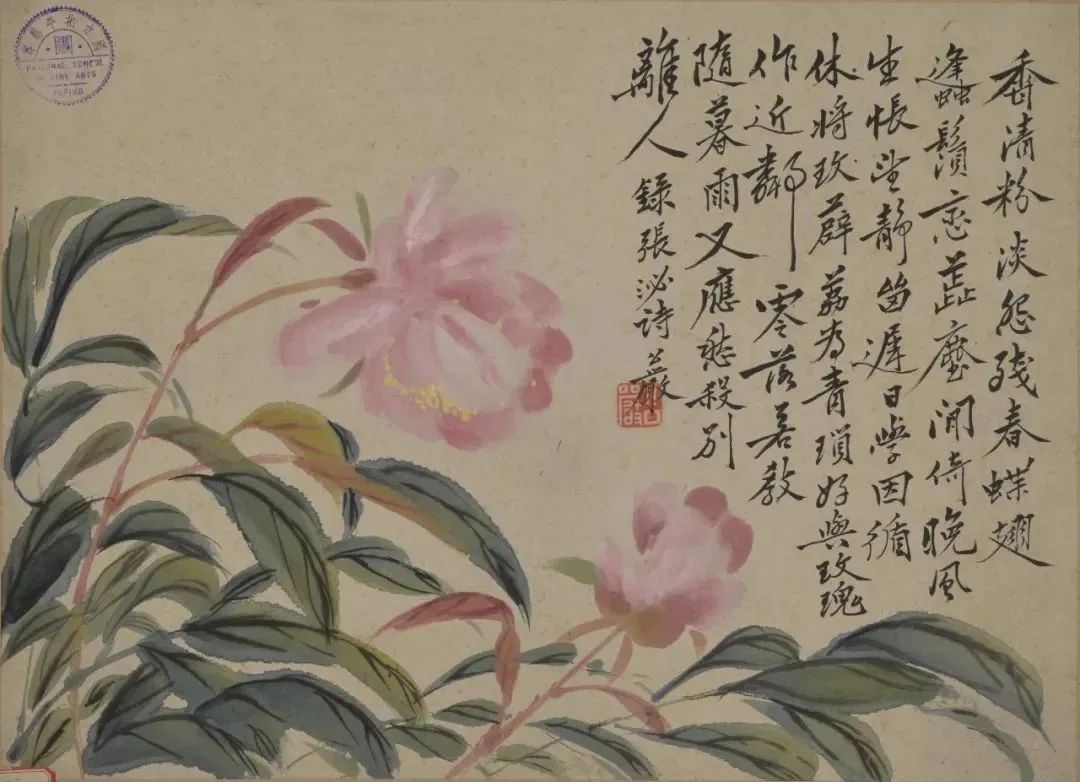 香清粉淡怨残春蝶翅
蜂鬚恋蕊塵间倚晚風
生悵望靜留遲日學因循
休將玫薜荔為青瑣好與玫瑰
作近鄰零落若教
隨暮雨又應愁殺別
離人 錄張泌詩
NATIONAL SCHOOL
OF FINE ARTS